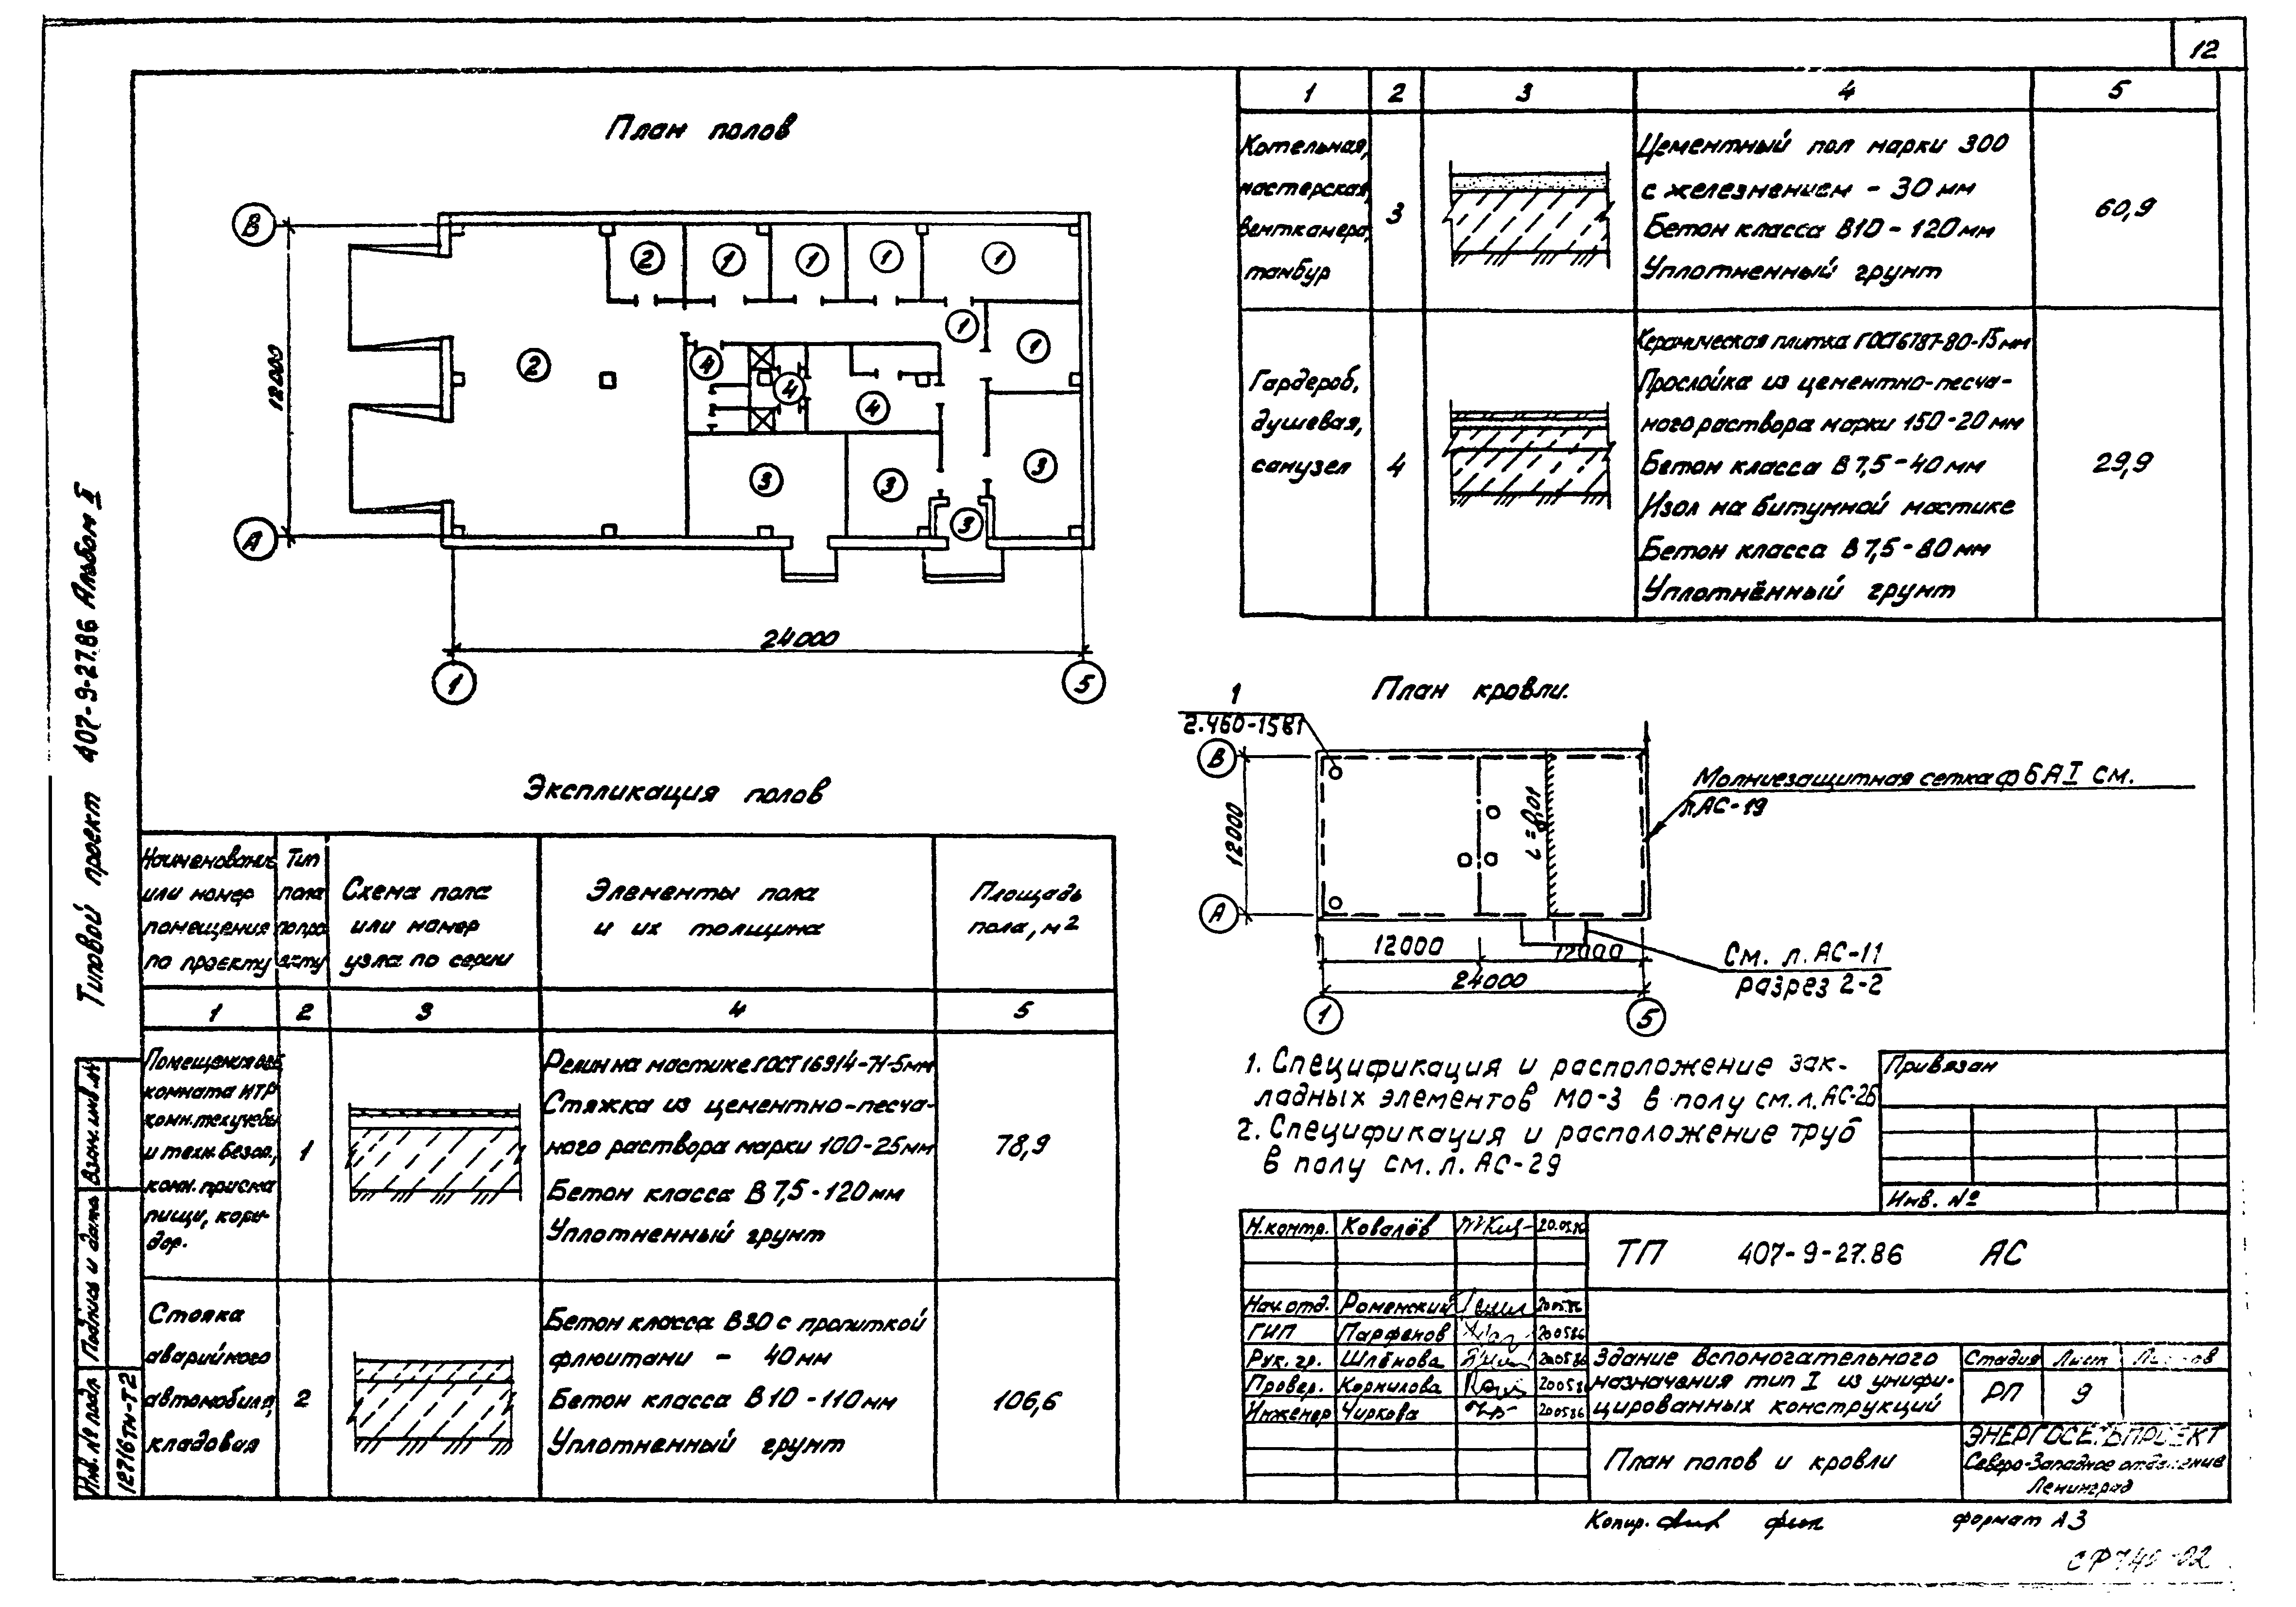 12
План полов
В
2
1
1
1
1
1
1
2
4
4
4
3
3
3
3
12000
А
24000
1
5
Экспликация полов
Наименование или номер помещения по проекту
Тип пола по проекту
Схема пола или номер узла по серии
Элементы пола и их толщина
Площадь пола, м2
1
2
3
4
5
комната ИТР
и техн. безоп.,
пищи, кори-
дор.
1
Релин на мастике ГОСТ 16914-71-5мм
Стяжка из цементно-песча-
ного раствора марки 100-25мм
Бетон класса В7,5-120мм
Уплотненный грунт
78,9
Стоянка
аварийного
автомобиля,
кладовая
2
Бетон класса В30 с пропиткой
флюитами - 40мм
Бетон класса В10-110мм
Уплотненный грунт
106,6
1
2
3
4
5
Котельная,
мастерская,
венткамера,
тамбур
3
Цементный пол марки 300
с железнением - 30мм
Бетон класса В10-120мм
Уплотненный грунт
60,9
Гардероб,
душевая,
санузел
4
Керамическая плитка ГОСТ6787-80-15мм
Прослойка из цементно-песча-
ного раствора марки 150-20мм
Бетон класса В7,5-40мм
Изол на битумной мастике
Бетон класса В7,5-80мм
Уплотнённый грунт
29,9
План кровли.
1
2.460-15В1
В
А
12000
i=0,01
Молниезащитная сетка ф6АI см.
л АС-19
12000
12000
24000
1
5
См. л. АС-11
разрез 2-2
1. Спецификация и расположение зак-
ладных элементов МО-3 в полу см.л. АС-26
2. Спецификация и расположение труб
в полу см. л. АС-29
Привязан
Инв. №
Н.контр. Ковалёв 20.05.86
ТП 407-9-27.86 АС
Нач.отд. Роменский 20.05.86
ГИП Парфенов 20.05.86
Рук. гр. Шлёнова 20.05.86
Провер. Корнилова 20.05.86
Инженер Чиркова 20.05.86
Здание вспомогательного
назначения тип I из унифи-
цированных конструкций
Стадия Лист Листов
РП 9
План полов и кровли
ЭНЕРГОСЕТЬПРОЕКТ
Северо-Западное отделение
Ленинград
Копир.
формат А3
Типовой проект 407-9-27.86 Альбом II
Взам. инв. №
Подпись и дата
Инв. № подл
12716тм-т2